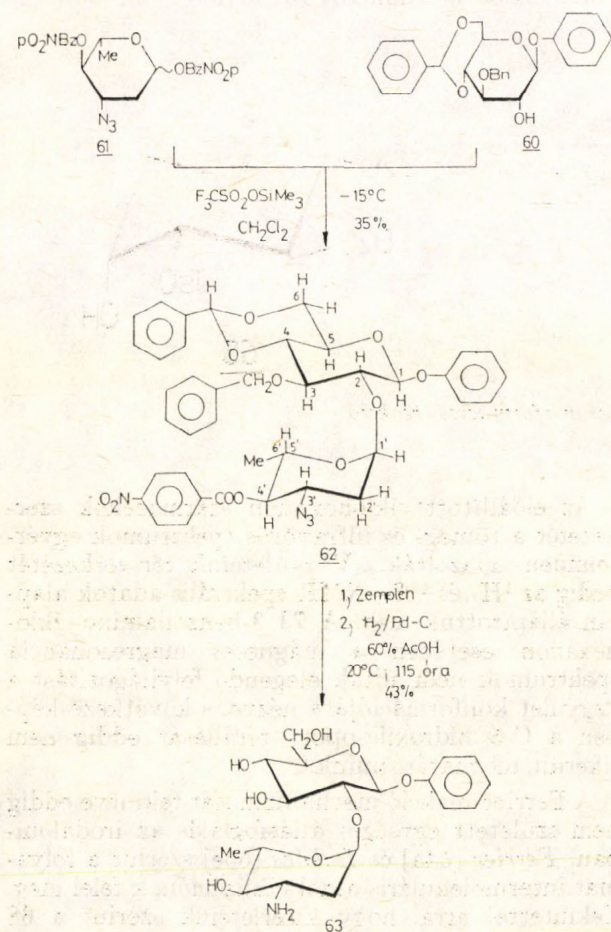 pO₂NBzO
Me
O
OBzNO₂p
N₃
61
O
O
O
O
OBn
OH
60
F₃CSO₂OSiMe₃
CH₂Cl₂
−15°C
35%
H
O
6
H
H
O
4
5
H
O
H
CH₂O
3
H
2
1
O
H
O
Me
6'
5'
H
O
1'
H
O₂N
COO
4'
H
3'
N₃
2'
H
H
H
62
1, Zemplén
2, H₂/Pd-C
60% AcOH
20°C, 115 óra
43%
CH₂OH
HO
HO
O
O
O
Me
O
HO
NH₂
63